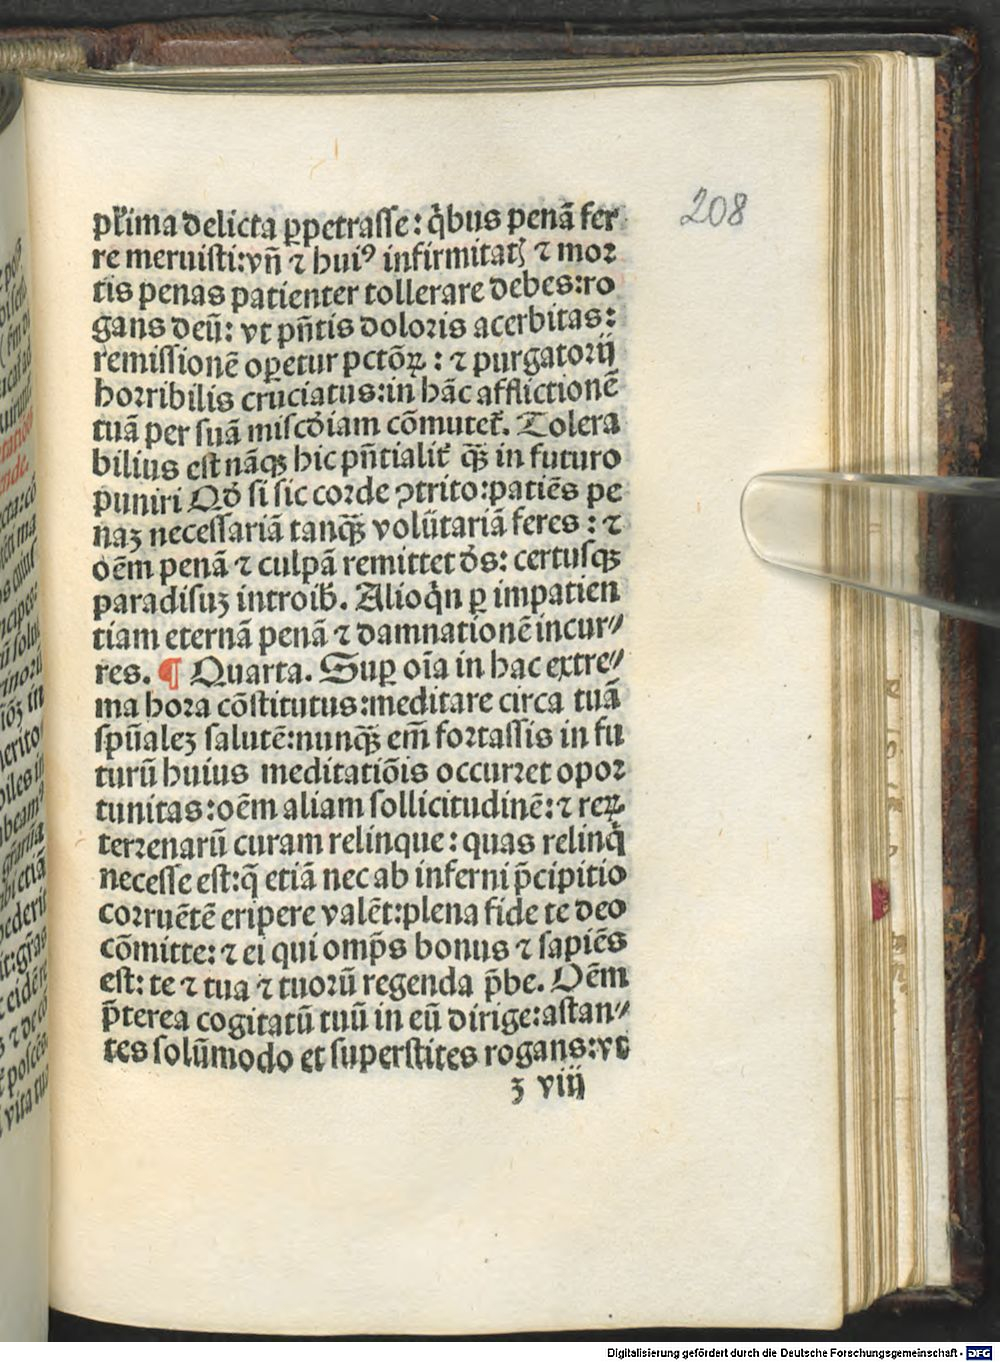 208
plꝛima delicta ꝑpetrasse: q̇bus penã fer
re meruisti: vñ ⁊ huiꝰ infirmitatꝭ ⁊ moꝛ
tis penas patienter tollerare debes: ro
gans deū: vt pñtis doloꝛis acerbitas:
remissionē oꝑetur pctõꝝ: ⁊ purgatoꝛij
hoꝛribilis cruciatus: in hãc afflictionē
tuã per suã miscďiam cõmuteť. Tolera
bilius est nãqꝫ hic pñtialiť qꝫ̃ in futuro
puniri Qď si sic coꝛde ꝯtrito: patiēs pe
naꝫ necessariã tanqꝫ̃ volūtariã feres: ⁊
oēm penã ⁊ culpã remittet ďs: certusqꝫ
paradisuꝫ introib̃. Alioq̇n ꝑ impatien
tiam eternã penã ⁊ damnationē incur⸗
res. ¶ Quarta. Suꝑ oĩa in hac extre⸗
ma hoꝛa cõstitutus: meditare circa tuã
spũaleꝫ salutē: nunqꝫ̃ em̃ foꝛtassis in fu
turū huius meditatiõis occurꝛet opoꝛ
tunitas: oēm aliam sollicitudinē: ⁊ reꝝ
terꝛenarū curam relinque: quas relinq̇
necesse est: q̃ etiã nec ab inferni p̃cipitio
coꝛruētē eripere valēt: plena fide te deo
cõmitte: ⁊ ei qui omp̃s bonus ⁊ sapiēs
est: te ⁊ tua ⁊ tuoꝛū regenda p̃be. Oēm
p̃terea cogitatū tuū in eū dirige: astan⸗
tes solūmodo et superstites rogans: vt
ꝫ viij
Digitalisierung gefördert durch die Deutsche Forschungsgemeinschaft - DFG